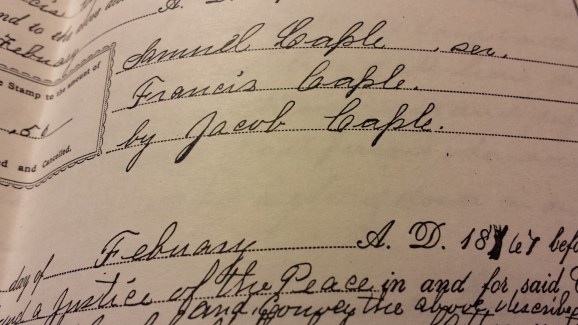 A. D.
nd to the
Februa
Samuel Caple, sen.
e Stamp to the amount of
Francis Caple.
.50
by Jacob Caple.
d and Cancelled.
day of Febuary A. D. 1867 befo
nd a Justice of the Peace in and for said
and Convey the above describe